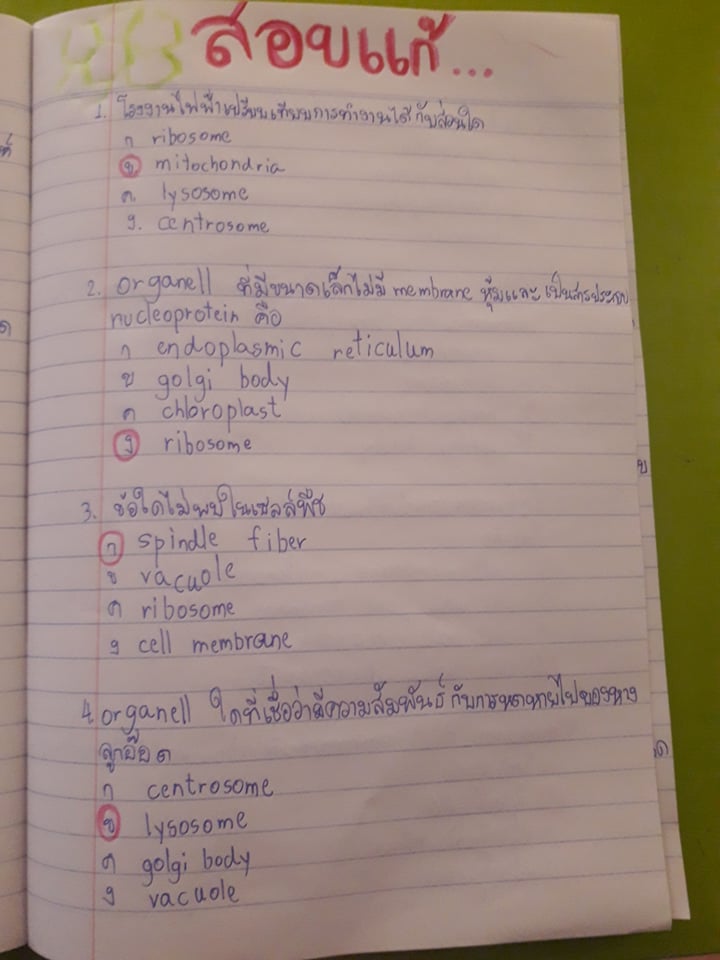 สอบแก้...
1. โรงงานไฟฟ้าเปรียบเทียบการทำงานได้กับส่วนใด
ก ribosome
ข mitochondria
ค. lysosome
ง. centrosome
2. organell ที่มีขนาดเล็กไม่มี membrane หุ้มและ เป็นสารประกอบ
nucleoprotein คือ
ก endoplasmic reticulum
ข golgi body
ค chloroplast
ง ribosome
3. ข้อใดไม่พบในเซลล์พืช
ก spindle fiber
ข vacuole
ค ribosome
ง cell membrane
4. organell ใดที่เชื่อว่ามีความสัมพันธ์กับการหดหายไปของหาง
ลูกอ๊อด
ก centrosome
ข lysosome
ค golgi body
ง vacuole